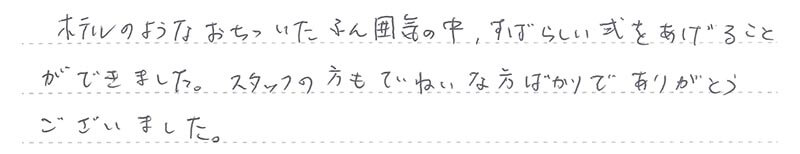 ホテルのようなおちついたふん囲気の中，すばらしい式をあげること
ができました。スタッフの方もていねいな方ばかりでありがとう
ございました。